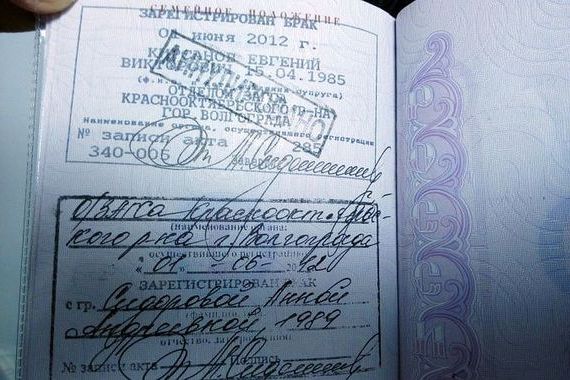 СЕМЕЙНОЕ ПОЛОЖЕНИЕ
ЗАРЕГИСТРИРОВАН БРАК
июня 2012 г.
ЕВГЕНИЙ
ВИКТОРОВИЧ 15.04.1985
супруга)
ОТДЕЛОМ ЗАГСА
КРАСНООКТЯБРЬСКОГО Р-НА
ГОР. ВОЛГОГРАДА
Наименование органа, осуществившего регистрацию
№ записи акта 285
340-006
ОЗАГСа Краснооктябрь-
ского р-на г. Волгограда
(наименование органа,
осуществившего регистрацию)
« 01 » 06 2012
ЗАРЕГИСТРИРОВАН БРАК
с гр. Сидоровой Анной
Андреевной, 1989
№ записи акта Подпись